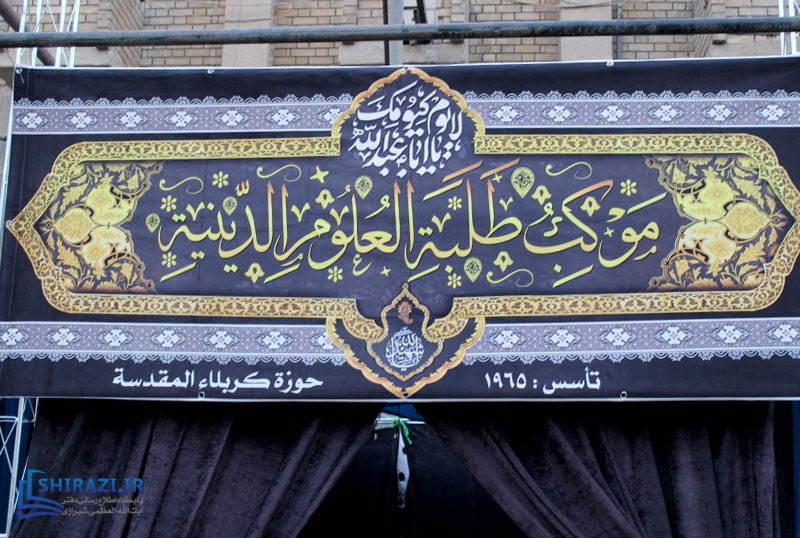 لا يوم كيومك
يا أبا عبد الله
مَوْكِبُ طَلَبَةِ العُلُومِ الدِّينِيَّةِ
تأسس : ١٩٦٥
حوزة كربلاء المقدسة
SHIRAZI.IR
پایگاه اطلاع رسانی دفتر
آیت الله العظمی شیرازی